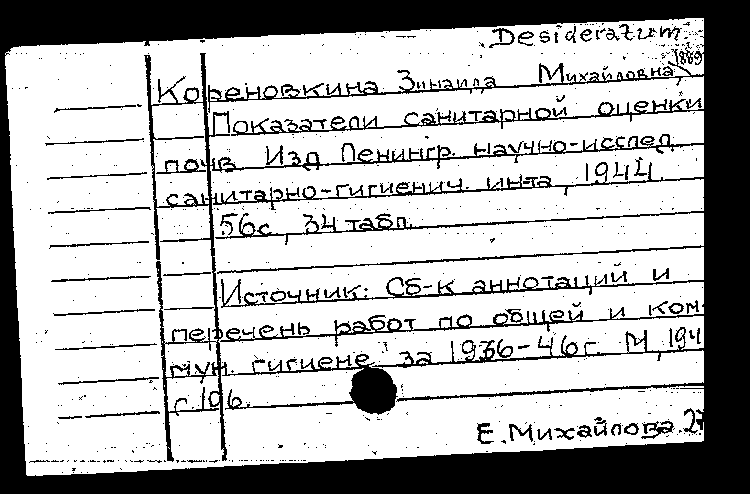 Desideratum
1869
Кореновкина Зинаида Михайловна,
Показатели санитарной оценки
почв Изд Ленингр. научно-исслед
санитарно-гигиенич. ин-та, 1944.
56с, 34 табл.
Источник: Сб-к аннотаций и
перечень работ по общей и ком-
мун. гигиене за 1936-46г. М, 194
с.106.
Е.Михайлова 27